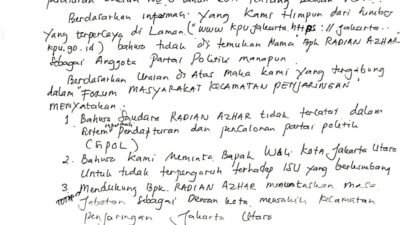 Berdasarkan informasi yang kami himpun dari sumber
yang terpercaya di Laman ("www kpujakarta.https://jakarta.
kpu.go.id) bahwa tidak di temukan Nama Bpk RADIAN AZHAR
sebagai Anggota Partai Politik manapun.
Berdasarkan Uraian di Atas maka kami yang tergabung
dalam "FORUM MASYARAKAT KECAMATAN PENJARINGAN"
menyatakan.
1 Bahwa Saudara RADIAN AZHAR tidak tercatat dalam
Sistem informasi Pendaftaran dan pencalonan partai politik
(SIPOL)
2. Bahwa kami Meminta Bapak Wali kota Jakarta Utara
Untuk tidak terpengaruh terhadap ISU yang berkembang
3. Mendukung Bpk. RADIAN AZHAR menuntaskan masa
Jabatan sebagai Dewan kota mewakili kecamatan
Penjaringan Jakarta Utara